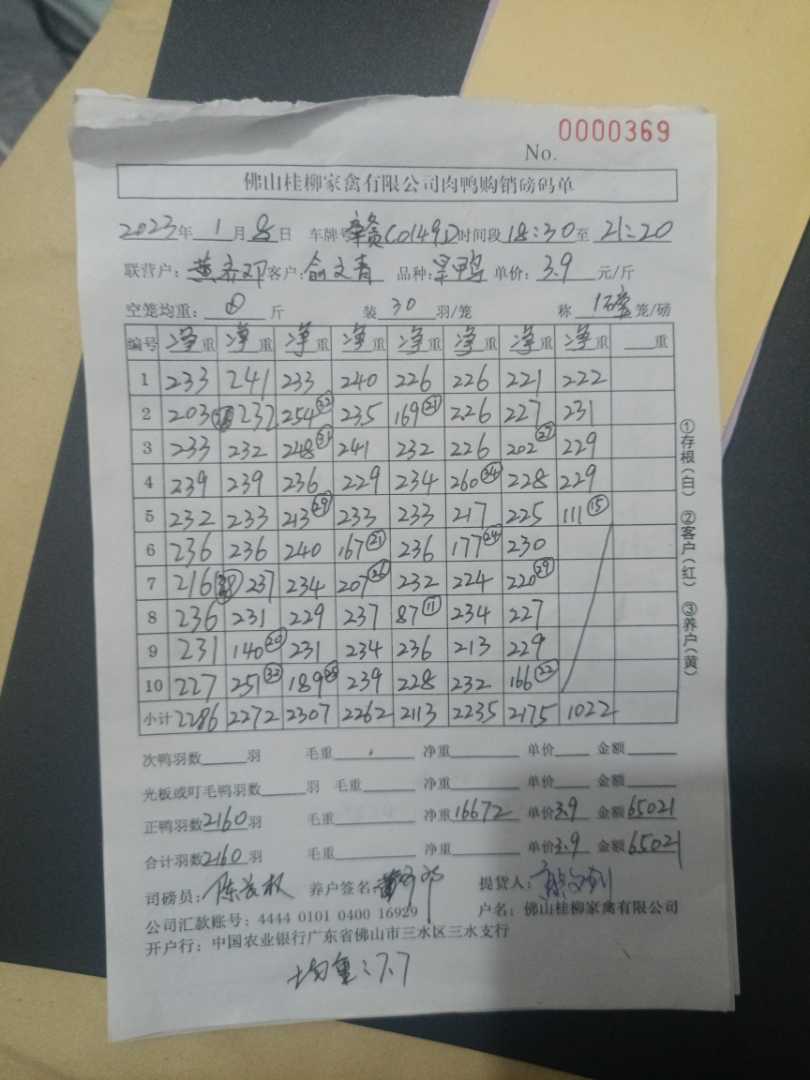 0000369
No.
佛山桂柳家禽有限公司肉鸭购销磅码单
2023年 1月8日 车牌号赣C0149D时间段18:30至21:20
联营户:黄齐邓客户:俞文青 品种:旱鸭单价:3.9元/斤
空笼均重: 斤 装30羽/笼 称1磅笼/磅
编号 净重 净重 净重 净重 净重 净重 净重 净重 重
1 233 241 233 240 226 226 221 222
2 203 232 254㉜ 235 169㉑ 226 227 231
3 233 232 248㉛ 241 232 226 202㉗ 229
4 239 239 236 229 234 260㉞ 228 229
5 232 233 213㉙ 233 233 217 225 111⑮
6 236 236 240 167㉑ 236 177㉔ 230
7 216 237 234 207㉖ 232 224 220㉙
8 236 231 229 237 87⑪ 234 227
9 231 140⑳ 231 234 236 213 229
10 227 251㉜ 189 239 228 232 166㉒
小计 2286 2272 2307 2262 2113 2235 2175 1022
①存根(白) ②客户(红) ③养户(黄)
次鸭羽数 羽 毛重 净重 单价 金额
光板或叮毛鸭羽数 羽 毛重 净重 单价 金额
正鸭羽数2160羽 毛重 净重16672 单价3.9 金额65021
合计羽数2160羽 毛重 净重 单价3.9 金额65021
司磅员: 养户签名: 提货人:
公司汇款账号:4444 0101 0400 16929 户名:佛山桂柳家禽有限公司
开户行:中国农业银行广东省佛山市三水区三水支行
均重:7.7